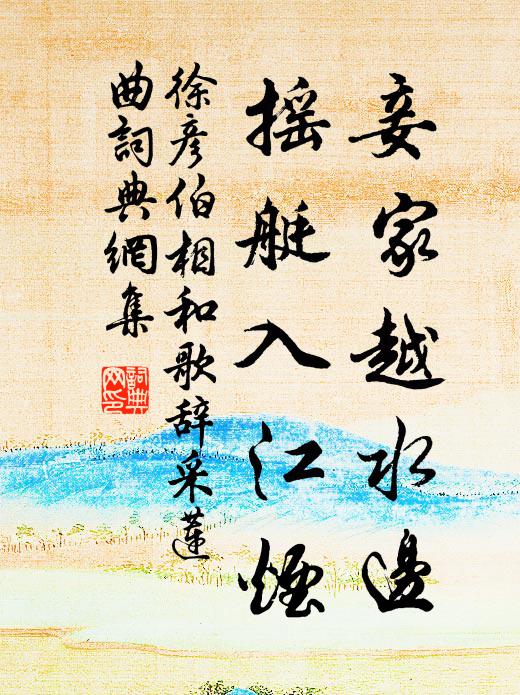 妾家越水邊
搖艇入江煙
徐彥伯相和歌辞采蓮
曲詞典網集
詞典网印